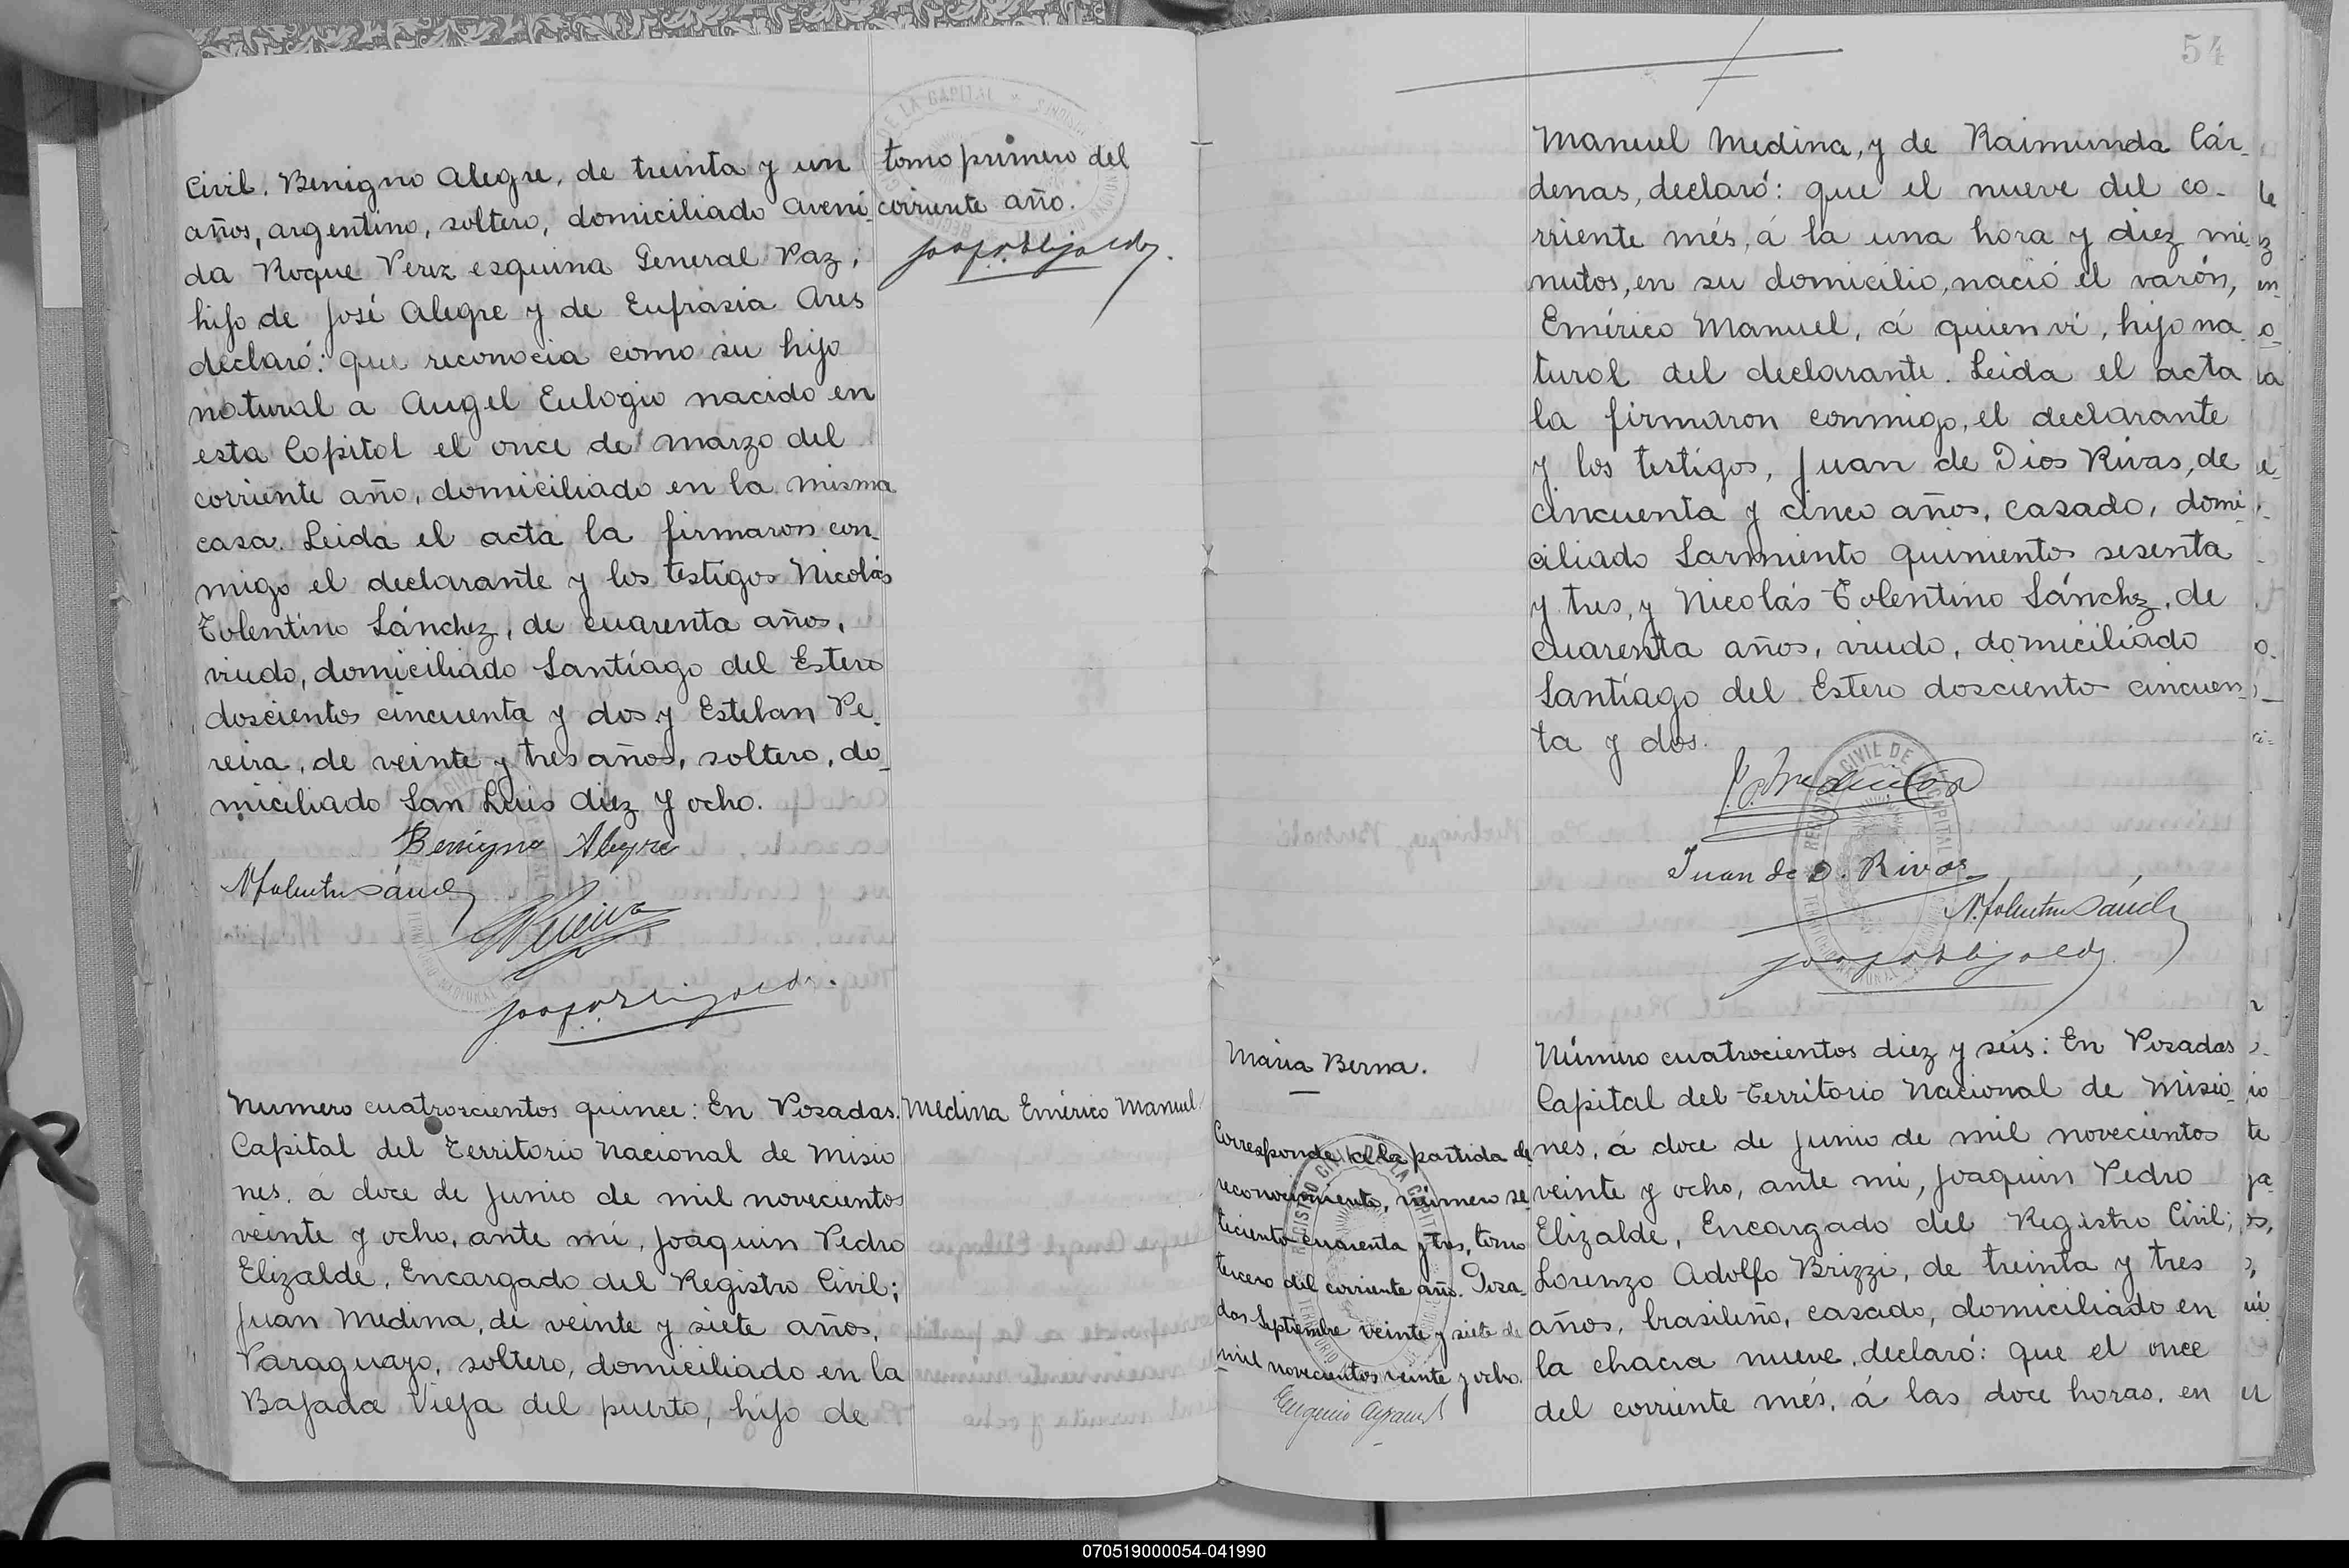 Civil. Benigno Alegre, de treinta y un
años, argentino, soltero, domiciliado Aveni-
da Roque Perez esquina General Paz;
hijo de José Alegre y de Eufrasia Ares
declaró: que reconocia como su hijo
natural a Angel Eulogio nacido en
esta Capital el once de marzo del
corriente año, domiciliado en la misma
casa. Leida el acta la firmaron con-
migo el declarante y los testigos Nicolás
Tolentino Sánchez, de cuarenta años,
viudo, domiciliado Santiago del Estero
doscientos cincuenta y dos y Esteban Pe-
reira, de veinte y tres años, soltero, do-
miciliado San Luis diez y ocho.
Benigno Alegre
N Tolentino Sánchez
Pereira
tomo primero del
corriente año.
Numero cuatrorcientos quince: En Posadas.
Capital del Territorio Nacional de Misio
nes, á doce de Junio de mil novecientos
veinte y ocho, ante mi, Joaquin Pedro
Elizalde, Encargado del Registro Civil;
Juan Medina, de veinte y siete años,
Paraguayo, soltero, domiciliado en la
Bajada Vieja del puerto, hijo de
Medina Emérico Manuel.
54
Manuel Medina, y de Raimunda Cár-
denas, declaró: que el nueve del co-
rriente més, á la una hora y diez mi-
nutos, en su domicilio, nació el varón,
Emérico Manuel, á quien vi, hijo na-
tural del declarante. Leida el acta
la firmaron conmigo, el declarante
y los testigos, Juan de Dios Rivas, de
cincuenta y cinco años, casado, domi-
ciliado Sarmiento quinientos sesenta
y tres, y Nicolás Tolentino Sánchez, de
cuarenta años, viudo, domiciliado
Santiago del Estero dosciento cincuen-
ta y dos.
Medina
Juan de D. Rivas
N. Tolentino Sánchez
REGISTRO CIVIL DE LA CAPITAL
Maria Berna.
Corresponde a la partida de
reconocimiento, número se-
teciento cuarenta y tres, tomo
tercero del corriente año. Posa-
das Septiembre veinte y siete de
mil novecientos veinte y ocho.
Número cuatrocientos diez y seis: En Posadas
Capital del Territorio Nacional de Misio-
nes, á doce de Junio de mil novecientos
veinte y ocho, ante mi, Joaquin Pedro
Elizalde, Encargado del Registro Civil;
Lorenzo Adolfo Brizzi, de treinta y tres
años, brasileño, casado, domiciliado en
la chacra nueve, declaró: que el once
del corriente més, á las doce horas, en
070519000054-041990